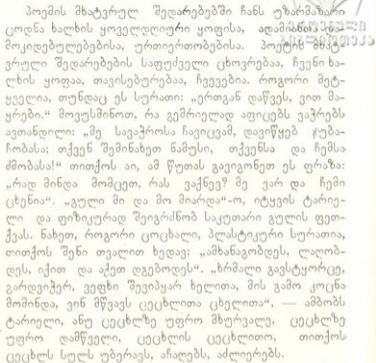 პოემის მხატვრულ შედარებებში ჩანს უზარმაზარი
ცოდნა ხალხის ყოველდღიური ყოფისა, ადამიანთა
მოკიდებულებებისა, ურთიერთობებისა. პოეტის მხატ-
ვრული შედარებების საფუძველი ცხოვრებაა, ჩვენი ხა-
ლხის ყოფაა, თავისებურებაა, ჩვევებია. როგორი მეტ-
ყველია, თუნდაც ეს სურათი: „ერთგან დაწვეს, ვით მა-
ყრები.“ მოვუსმინოთ, რა გემრიელად აფიცებს ვაჭრებს
ავთანდილი: „მე სავაჭროსა ჩავიცვამ, დავიწყებ ჯუბა-
ჩობასა; თქვენ შემინახეთ ნამუსი, თქვენსა და ჩემსა
ძმობასა!“ თითქოს აი, ამ წუთას გავიგონეთ ეს ფრაზა:
„რად მინდა მომცეთ, რას ვაქნევ? მე ვარ და ჩემი
ცხენია“. „გული მი და მო მიარდა“-ო, იტყვის ტარიე-
ლი და ფიზიკურად შეიგრძნობ საკუთარი გულის ფეთ-
ქვას. ნახეთ, როგორი ცოცხალი, პლასტიკური სურათია,
თითქოს შენი თვალით ხედავ: „ამხანაგობდეს, ლაღობ-
დეს, იქით და აქეთ დგებოდეს“. „ხრმალი გავსტყორცე,
გარდვიჭერ, ვეფხი შევიპყარ ხელითა, მის გამო კოცნა
მომინდა, ვინ მწვავს ცეცხლითა ცხელითა“, — ამბობს
ტარიელი, ანუ ცეცხლზე უფრო მხურვალე, ცეცხლზე
უფრო დამწველი, ცეცხლის ცეცხლითო, თითქოს
ცეცხლს სულს უბერავს, აჩაღებს, აძლიერებს.